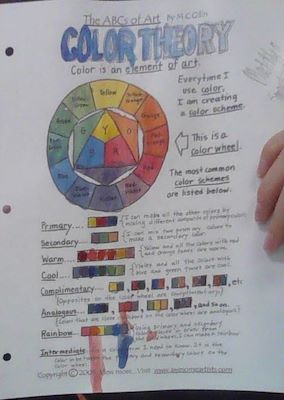 The ABCs of Art By M.C.Gillis
COLOR THEORY
Color is an element of art.
Everytime I
use color,
I am creating
a color scheme.
Yellow
Yellow-Orange
Orange
Red
Red-Violet
Violet
Blue-Violet
Blue
Blue-Green
Green
Yellow-Green
Y
O
R
V
B
G
This is a
color wheel.
The most common
color schemes
are listed below.
Primary....
I can make all the other colors by
mixing different amounts of primary colors.
Secondary
I can mix two primary colors to
make a secondary color.
Warm....
Yellow and all the colors with red
and orange tones are warm.
Cool....
Violet and all the colors with
blue and green tones are cool.
Complimentary.... , etc
(Opposites on the color wheel are complimentary.)
Analogous.... , and so on.
(Colors that are side by side on the color wheel are analogous.)
Rainbow....
Using primary and secondary
colors placed in order from
the wheel, I can make a rainbow.
Intermediate is a color term I need to know. It is the
color in between the primary and secondary colors on the
color wheel.
Copyright © Want more... Visit www.awesomeartists.com